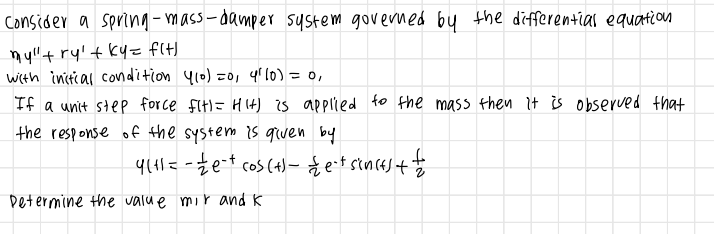 Consider a spring-mass-damper system governed by the differential equation
my'' + ry' + ky = f(t)
with initial condition y(0) = 0, y'(0) = 0,
If a unit step force f(t) = H(t) is applied to the mass then it is observed that
the response of the system is given by
y(t) = -1/2 e^-t cos(t) - 1/2 e^-t sin(t) + 1/2
Determine the value m, r and k